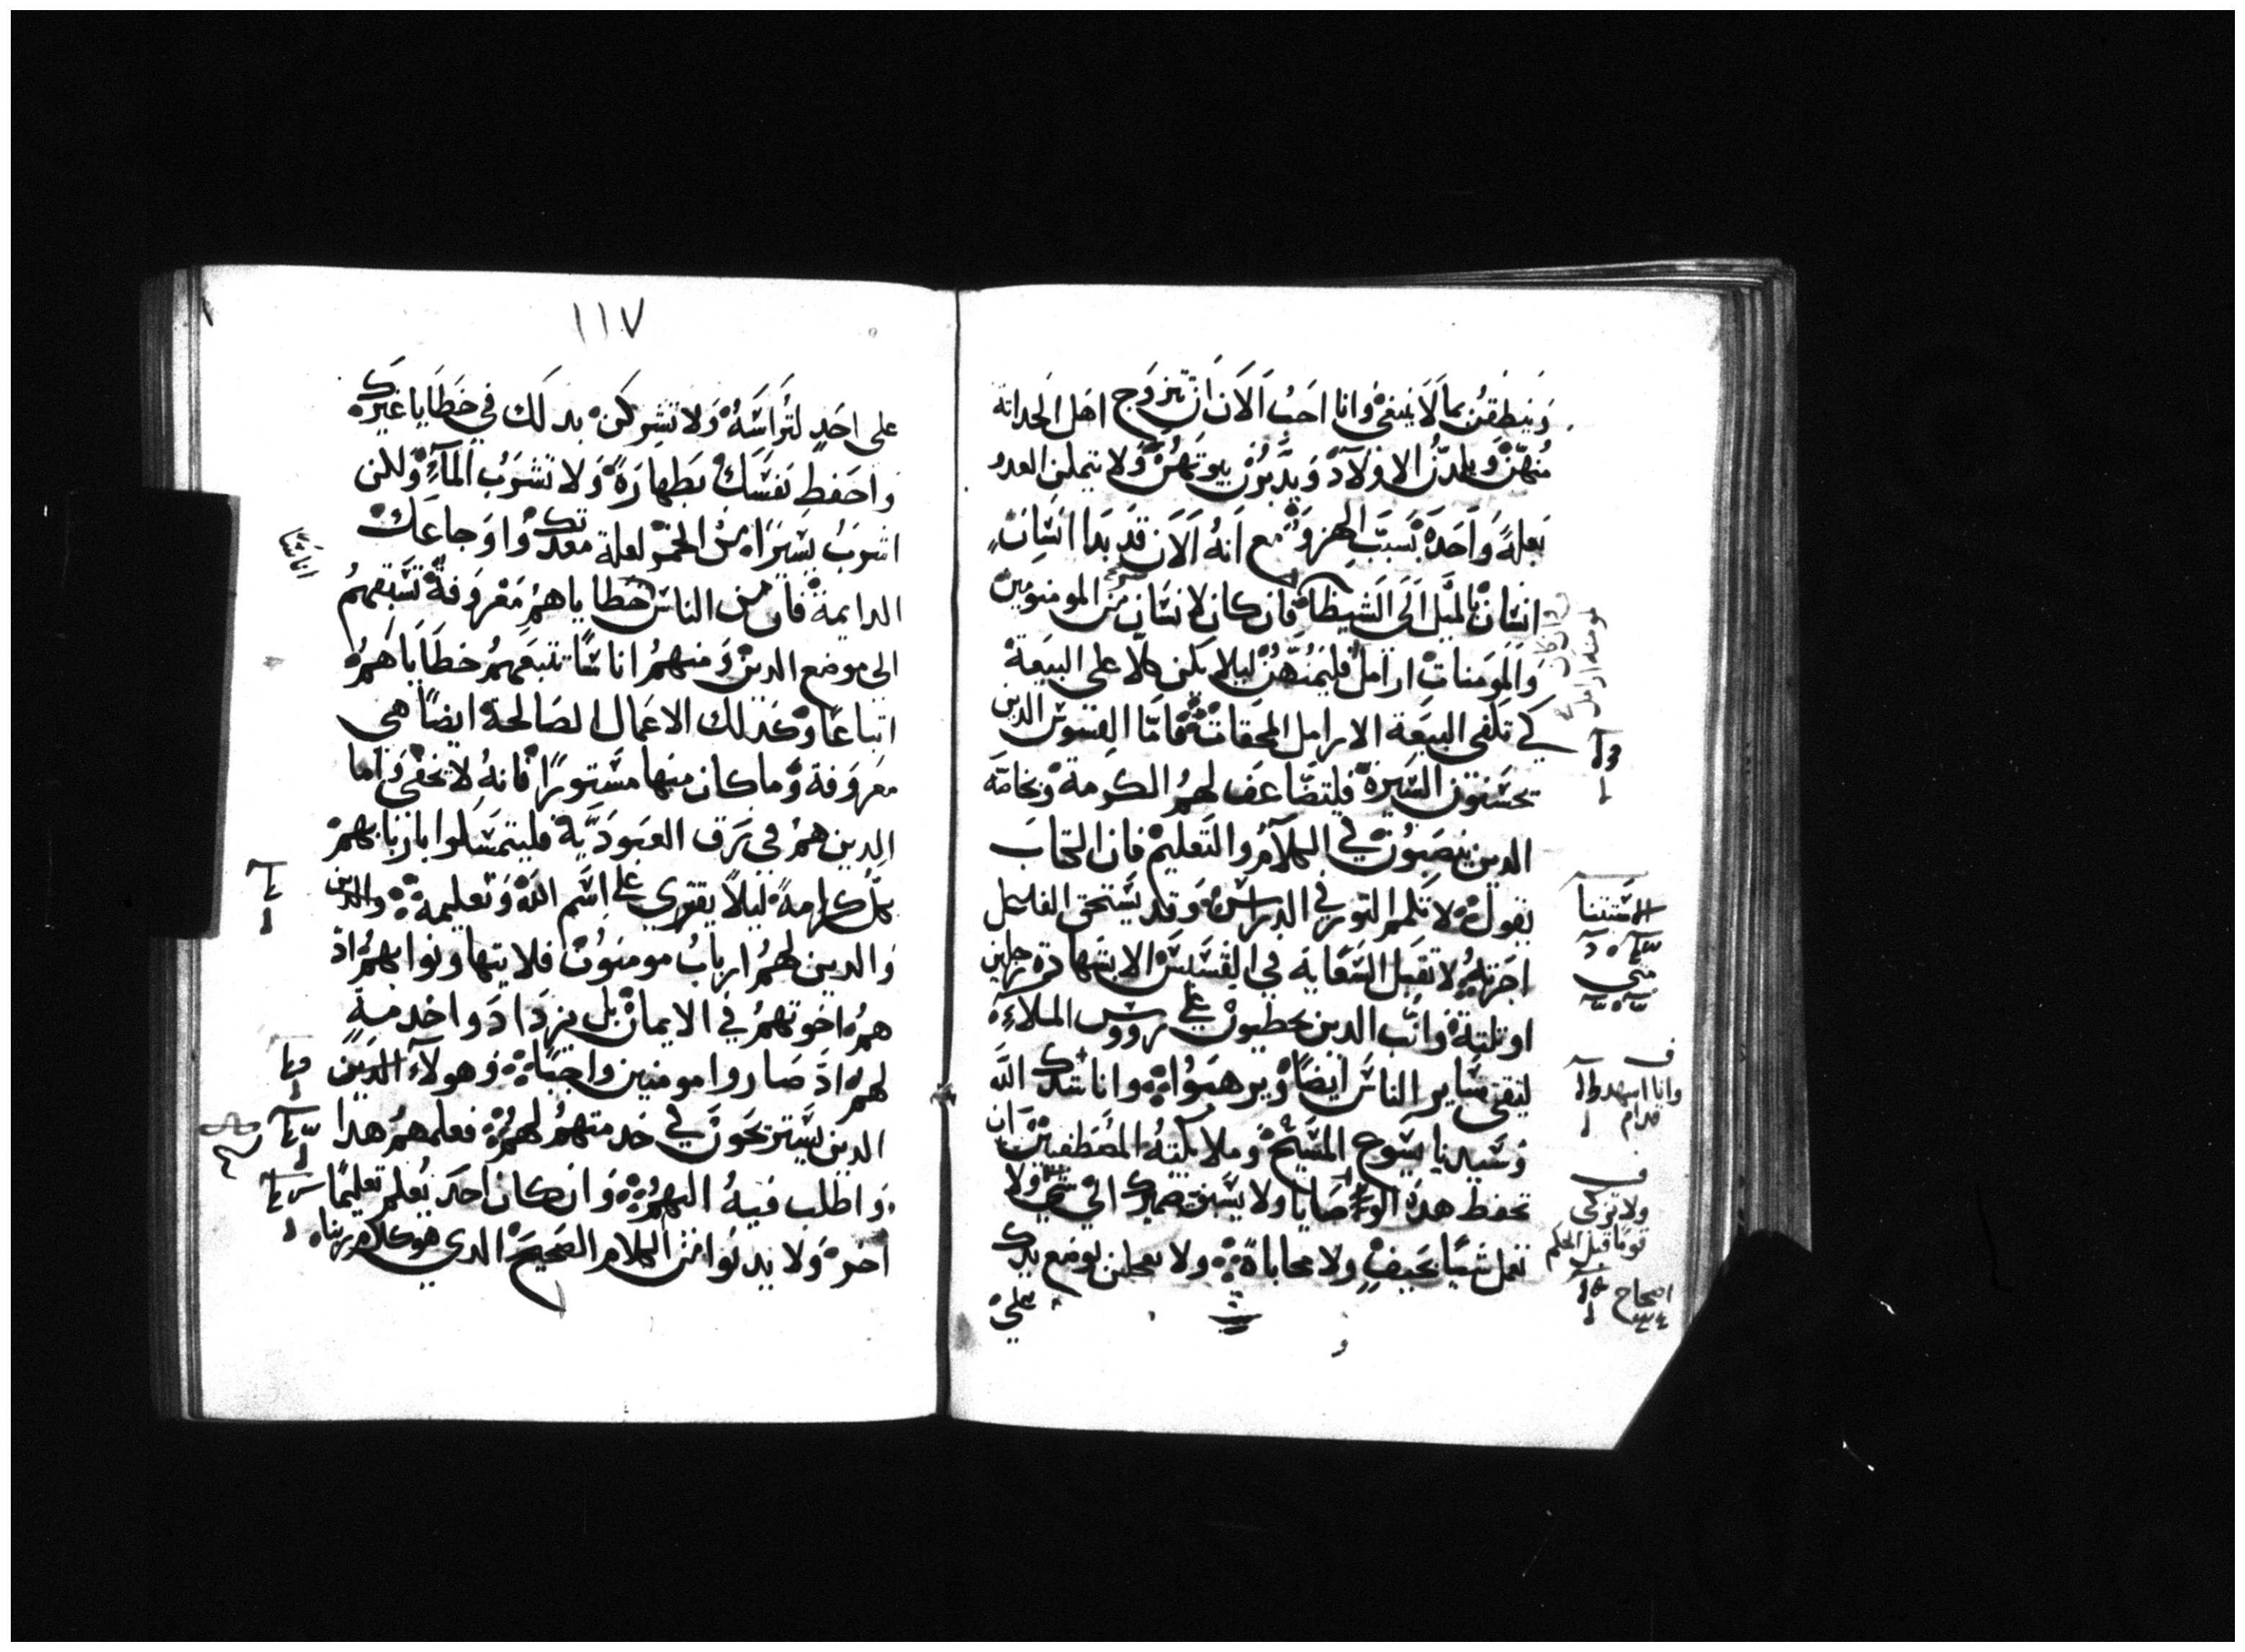 وينطقن بما لا ينبغي وانا احب الان ان تتزوج اهل الحداثة
منهن ويلدن الاولاد ويدبرن بيوتهن ولا تيملن العدو
بعلة واحدة بسبب الهزو مع انه الان قد بدا انسان
انسان بالميل الى الشيطان فان كان لانسان من المومنين
والمومنات ارامل فليمنهن ليلا يكن كلا على البيعة
كي تكفى البيعة الارامل المحقات فاما القسوس الدين
تحسنون السيرة فليتضاعف لهم الكرمة وبخاصة
الدين ينصبون في الكلام والتعليم فان الكتاب
يقول لا تكمر التور في الدراس وقد يستحق الفاعل
اجرته لا تقبل السعاية في القسيس الا بشهادة رجلين
او تلتة وانب الدين يخطيون على رووس الملاء
ليتقى ساير الناس ايضا ويرهبوا وانا انشدك الله
وسيدنا يسوع المسيح وملايكته المصطفين ان
تحفظ هده الوصايا ولا يسبق ضميرك الى شي ولا
تعمل شيا بحيف ولا محاباة ولا تعجلن بوضع يدك
على
ولا تزكى
قوما قبل الحكم
اصحاح
متى
وانا اشهد
قدام
١١٧
على احد لتراسه ولا تشركن بدلك في خطايا غيرك
واحفظ نفسك بطهارة ولا تشرب الماء ولكن
اشرب يسيرا من الخمر لعلة معدتك واوجاعك
الدايمة فان من الناس خطاياهم معروفة تسبقهم
الى موضع الدين ومنهم اناسا تتبعهم خطاياهم
اتباعا وكدلك الاعمال الصالحة ايضا هي
معروفة وما كان منها مستورا فانه لا يخفى واما
الدين هم في رق العبودية فليتمسكوا باربابهم
بكل كرامة ليلا يفترى على اسم الله وتعليمه والدين
والدين لهم ارباب مومنون فلا يتهاونوا بهم اد
هم اخوتهم في الايمان بل يزدادوا خدمة
لهم اد صاروا مومنين واحبا وهولاء الدين
الدين يستريحون في خدمتهم لهم فعلمهم هدا
واطلب فيه اليهم وان كان احد يعلم تعليما
اخر ولا يدنوا من الكلام الصحيح الدي هو كلام ربنا